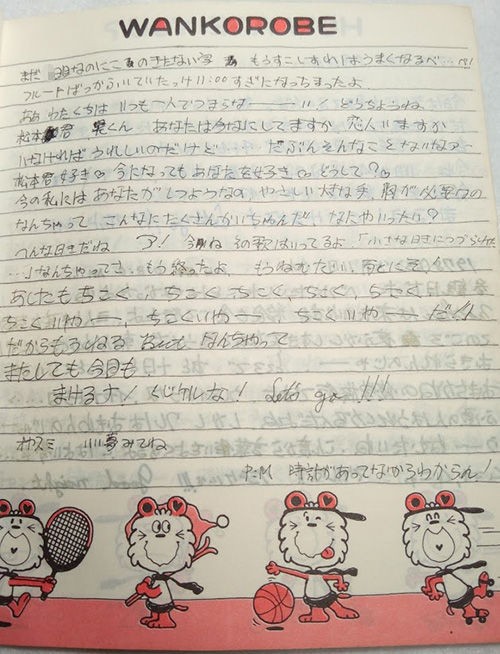 WANKOROBE
まだ 3日なのにこの きたない字 もうすこしすればうまくなるべ…ベ!
フルートばっかふいていたっけ 11:00すぎになっちまったよ
ああ わたくちは いつも一人でつまらない!! どうちようね
松本君 晃くん あなたは今なにしてますか 恋人いますか
いなければうれしいのだけど だぶんそんなことないな
松本君好き 今になってもあなたを好き どうして?
今の私にはあなたがひつようなの やさしい大きな手、胸が必要なの
なんちゃって こんなにたくさんかいちゃんだ なにやいったい?
へんな日きだね ア! 今ね その歌はいってるよ「小さな日きにつづられた
…」なんちゃってさ、もう終ったよ、もうねむたい
あしたもちこく、ちこく ちこく、ちこく、ちこく、
ちこくいやー、ちこくいやー ちこくいやー だ!!
だからもうねる なんちゃって
またしても今日も
まけるナ! くじケルな! Let's go!!!
オヤスミ いい夢みてね
P.M 時計があってないからわからん!